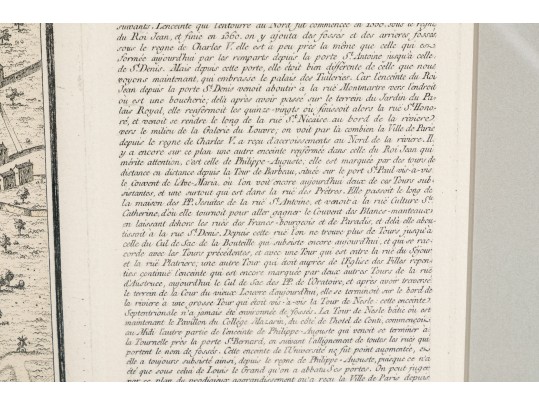 suivants. L'enceinte qui l'entoure au Nord, fut commencée en 1356. sous le regne
du Roi Jean, et finie en 1360. on y ajouta des fosses et des arrieres fosses
sous le regne de Charles V. elle est à peu près la même que celle qui est
formée aujourd'hui par les remparts depuis la porte St. Antoine jusqu'à celle
de St. Denis. Mais depuis cette porte, elle étoit bien différente de celle que nous
voyons maintenant, qui embrasse le palais des Tuileries. Car l'enceinte du Roi
Jean depuis la porte St. Denis venoit aboutir à la rue Montmartre vers l'endroit
où est une boucherie; delà après avoir passé sur le terrein du Jardin du Pa-
lais Royal, elle renfermoit les quinze-vingts ou finissoit alors la rue St. Hono-
ré, et venoit se rendre le long de la rue St. Nicaise au bord de la riviere
vers le milieu de la Galerie du Louvre; on voit par là combien la Ville de Paris
depuis le regne de Charles V. a reçu d'accroissemens au Nord de la riviere. Il
y a encore sur ce plan une autre enceinte renfermée dans celle du Roi Jean qui
mérite attention, c'est celle de Philippe-Auguste, elle est marquée par des tours de
distance en distance depuis la Tour de Barbeau, située sur le port St. Paul vis-à-vis
le Couvent de l'Ave-Maria, où l'on voit encore aujourd'hui deux de ces Tours sub-
sistantes, et une surtout qui est dans la rue des Prêtres. Elle passoit le long de
la maison des PP. Jesuites de la rue St. Antoine, et venoit à la rue Culture Ste.
Catherine, d'où elle tournoit pour aller gagner le Couvent des Blancs-manteaux
en laissant dehors les rues des Francs-Bourgeois et de Paradis, et delà elle abou-
tissoit à la rue St. Denis, Depuis cette rue l'on ne trouve plus de Tours jusqu'à
celle du Cul de Sac de la Bouteille qui subsiste encore aujourd'hui, et qui se rac-
corde avec les Tours précédentes, et avec une Tour qui est entre la rue du Sejour
et la rue Platriere; une autre Tour qui étoit auprès de l'Eglise des Filles repen-
ties continue l'enceinte qui est encore marquée par deux autres Tours de la rue
d'Austruce, aujourd'hui le Cul de Sac des PP. de l'Oratoire, et après avoir traversé
le terrein de la Cour du vieux Louvre d'aujourd'hui, elle se terminoit sur le bord de
la riviere à une grosse Tour qui étoit vis-à-vis la Tour de Nesle: cette enceinte
Septentrionale n'a jamais été environnée de fossés. La Tour de Nesle bâtie où est
maintenant le Pavillon du Collége Mazarin, du côté de l'hotel de Conti, commençoit
au Midi l'autre partie de l'enceinte de Philippe-Auguste qui venoit se terminer à
la Tournelle près la porte St. Bernard, en suivant l'allignement de toutes les rues qui
portent le nom de fossés. Cette enceinte de l'Université ne fut point augmentée, ou
elle a toujours subsisté ainsi, depuis le regne de Philippe-Auguste, puisque ce n'a
été que sous celui de Louis le Grand qu'on a abbatu ses portes. On peut juger
par ce plan du prodigieux aggrandissement qu'a reçu la Ville de Paris depuis